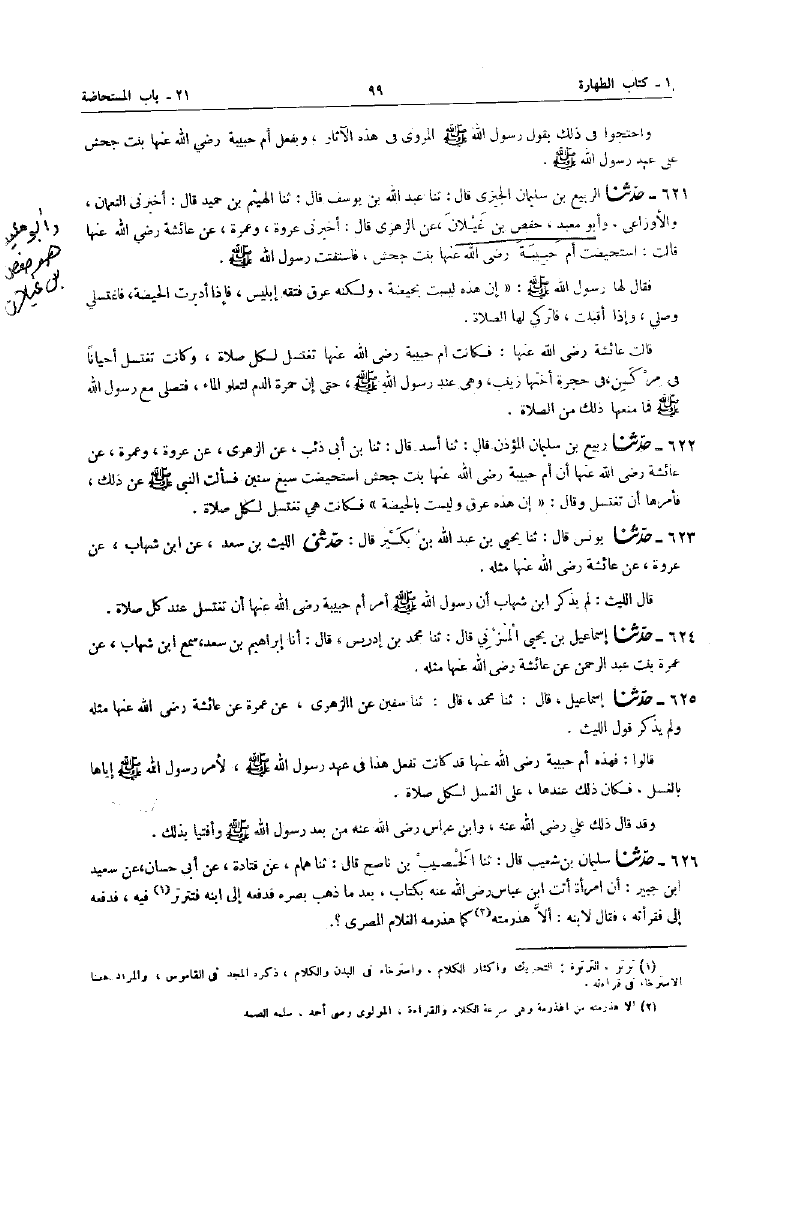 ١ - كتاب الطهارة ٩٩ ٢١ - باب المستحاضة
واحتجوا فى ذلك بقول رسول الله ﷺ المروى فى هذه الآثار ، وبفعل أم حبيبة رضي الله عنها بنت جحش
على عهد رسول الله ﷺ .
٦٢١ - حدثنا الربيع بن سليمان الجيزى قال : ثنا عبد الله بن يوسف قال : ثنا الهيثم بن حميد قال : أخبرنى النعمان ،
والأوزاعى . وأبو معبد ، حفص بن غيلان ، عن الزهرى قال : أخبرنى عروة ، وعمرة ، عن عائشة رضي الله عنها
قالت : استحيضت أم حبيبة رضى الله عنها بنت جحش ، فاستفتت رسول الله ﷺ .
وأبو معيد
هو حفص
بن غيلان
فقال لها رسول الله ﷺ : « إن هذه ليست بحيضة ، ولكنه عرق فتقه إبليس ، فإذا أدبرت الحيضة، فاغتسلي
وصلي ، وإذا أقبلت ، فاتركي لها الصلاة .
قالت عائشة رضى الله عنها : فكانت أم حبيبة رضى الله عنها تغتسل لكل صلاة ، وكانت تغتسل أحياناً
فى مركن، فى حجرة أختها زينب، وهى عند رسول الله ﷺ ، حتى إن حمرة الدم لتعلو الماء ، فتصلى مع رسول الله
ﷺ فما منعها ذلك من الصلاة .
٦٢٢ - حدثنا ربيع بن سليمان المؤذن قال : ثنا أسد قال : ثنا بن أبى ذئب ، عن الزهرى ، عن عروة ، وعمرة ، عن
عائشة رضى الله عنها أن أم حبيبة رضى الله عنها بنت جحش استحيضت سبع سنين فسألت النبى ﷺ عن ذلك ،
فأمرها أن تغتسل وقال : « إن هذه عرق وليست بالحيضة » فكانت هي تغتسل لكل صلاة .
٦٢٣ - حدثنا يونس قال : ثنا يحيى بن عبد الله بن بكير قال : حدثنى الليث بن سعد ، عن ابن شهاب ، عن
عروة ، عن عائشة رضى الله عنها مثله .
قال الليث : لم يذكر ابن شهاب أن رسول الله ﷺ أمر أم حبيبة رضى الله عنها أن تغتسل عند كل صلاة .
٦٢٤ - حدثنا إسماعيل بن يحيى المزنى قال : ثنا محمد بن إدريس ، قال : أنا إبراهيم بن سعد، سمع ابن شهاب ، عن
عمرة بنت عبد الرحمن عن عائشة رضى الله عنها مثله .
٦٢٥ - حدثنا إسماعيل ، قال : ثنا محمد ، قال : ثنا سفين عن االزهرى ، عن عمرة عن عائشة رضى الله عنها مثله
ولم يذكر قول الليث .
قالوا : فهذه أم حبيبة رضى الله عنها قد كانت تفعل هذا فى عهد رسول الله ﷺ ، لأمر رسول الله ﷺ إياها
بالغسل . فكان ذلك عندها ، على الغسل لكل صلاة .
وقد قال ذلك علي رضى الله عنه ، وابن عباس رضى الله عنه من بعد رسول الله ﷺ وأفتيا بذلك .
٦٢٦ - حدثنا سليمان بن شعيب قال : ثنا الخصيب بن ناصح قال : ثنا همام ، عن قتادة ، عن أبى حسان، عن سعيد
ابن جبير : أن امرأة أتت ابن عباس رضى الله عنه بكتاب ، بعد ما ذهب بصره فدفعه إلى ابنه فتترتر (١) فيه ، فدفعه
إلى فقرأته ، فقال لابنه : ألا هذرمته (٢) كما هذرمه الغلام المصرى ؟.
(١) ترتر . الترترة : التحريك واكثار الكلام . واسترخاء فى البدن والكلام ، ذكره المجد فى القاموس ، والمراد ههنا
الاسترخاء فى قراءته .
(٢) الا هذرمته من الهذرمة وهى سرعة الكلام والقراءة ، المولوى وصى أحمد . سلمه الصمد